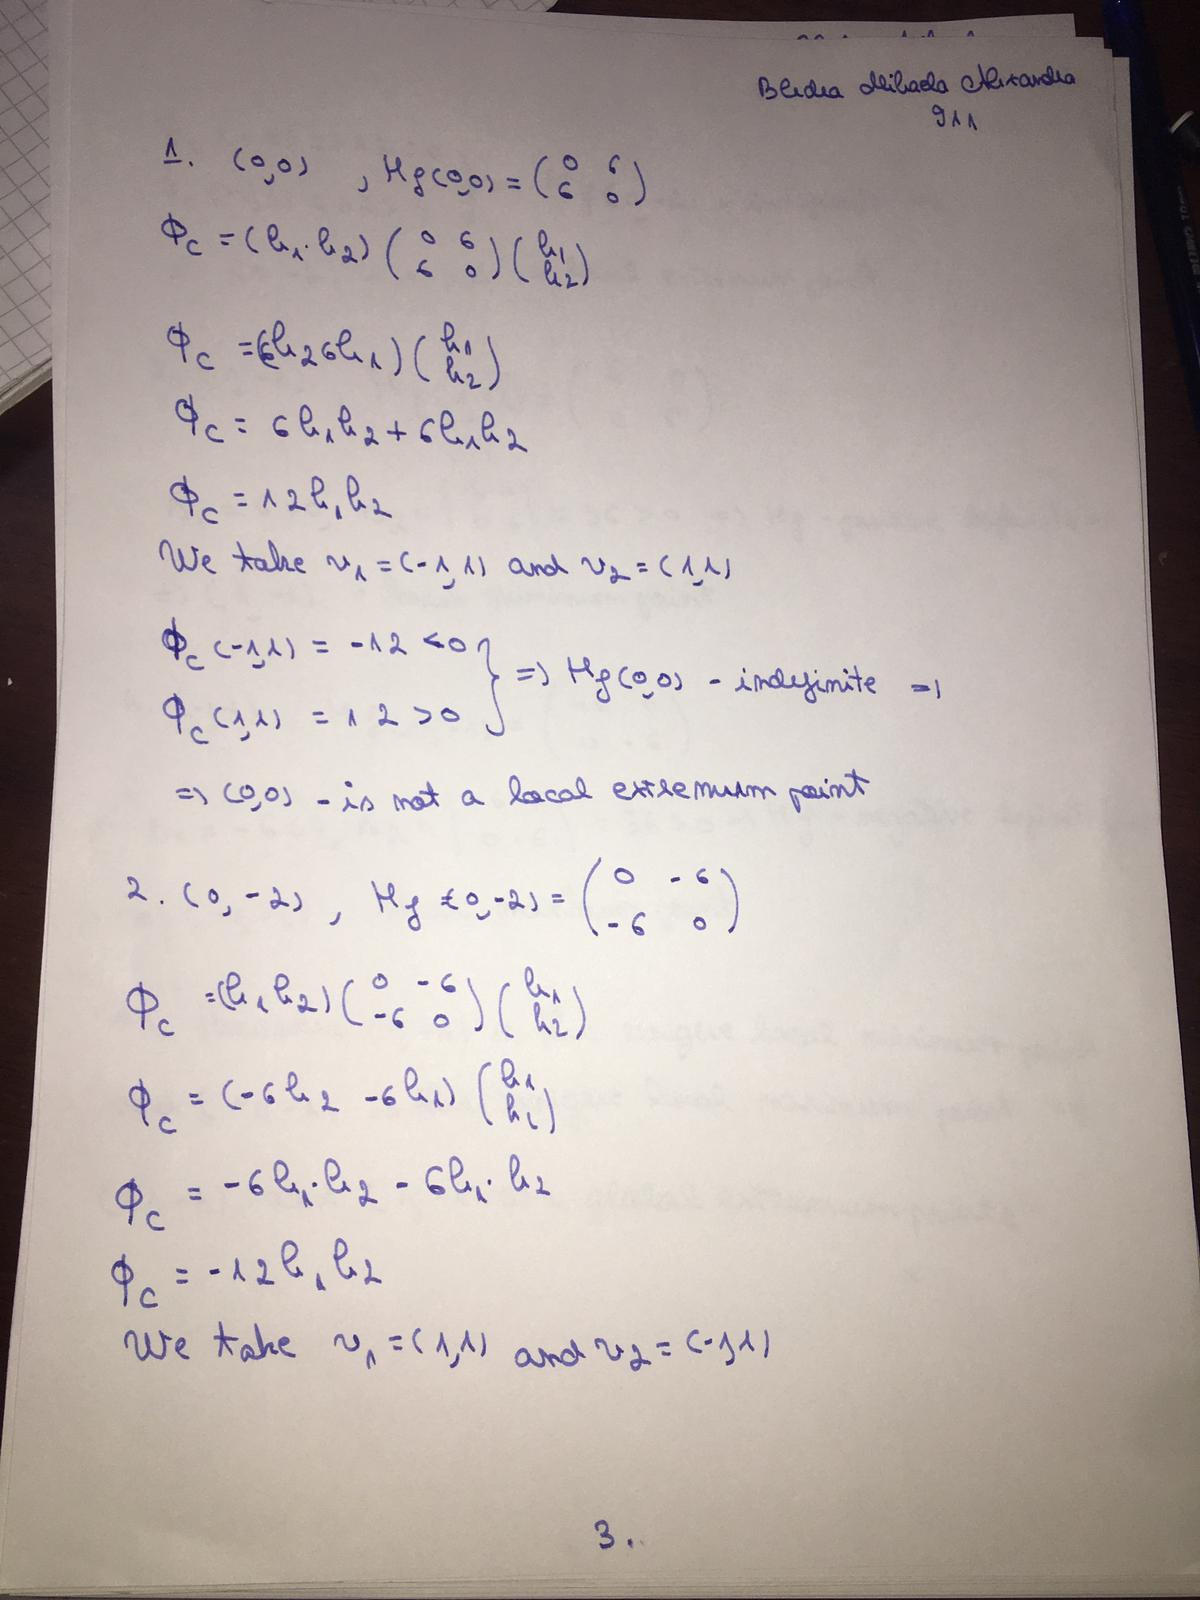 Mihaela Alexandra
911
1. (0,0) , Hf(0,0) = ( 0 6
6 0 )
Φc = (h1·h2) ( 0 6
6 0 ) ( h1
h2 )
Φc = (6h2 6h1) ( h1
h2 )
Φc = 6h1h2 + 6h1h2
Φc = 12h1h2
We take v1 = (-1,1) and v2 = (1,1)
Φc(-1,1) = -12 < 0
Φc(1,1) = 12 > 0 } => Hf(0,0) - indefinite =>
=> (0,0) - is not a local extremum point
2. (0, -2) , Hf (0,-2) = ( 0 -6
-6 0 )
Φc = (h1 h2) ( 0 -6
-6 0 ) ( h1
h2 )
Φc = (-6h2 -6h1) ( h1
h2 )
Φc = -6h1·h2 - 6h1·h2
Φc = -12h1h2
We take v1 = (1,1) and v2 = (-1,1)
3.